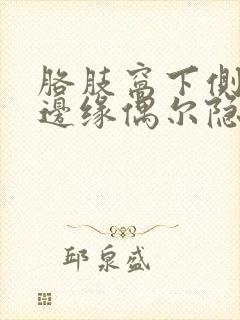 胳肢窝下侧
邊缘偶尔隐
邱泉盛